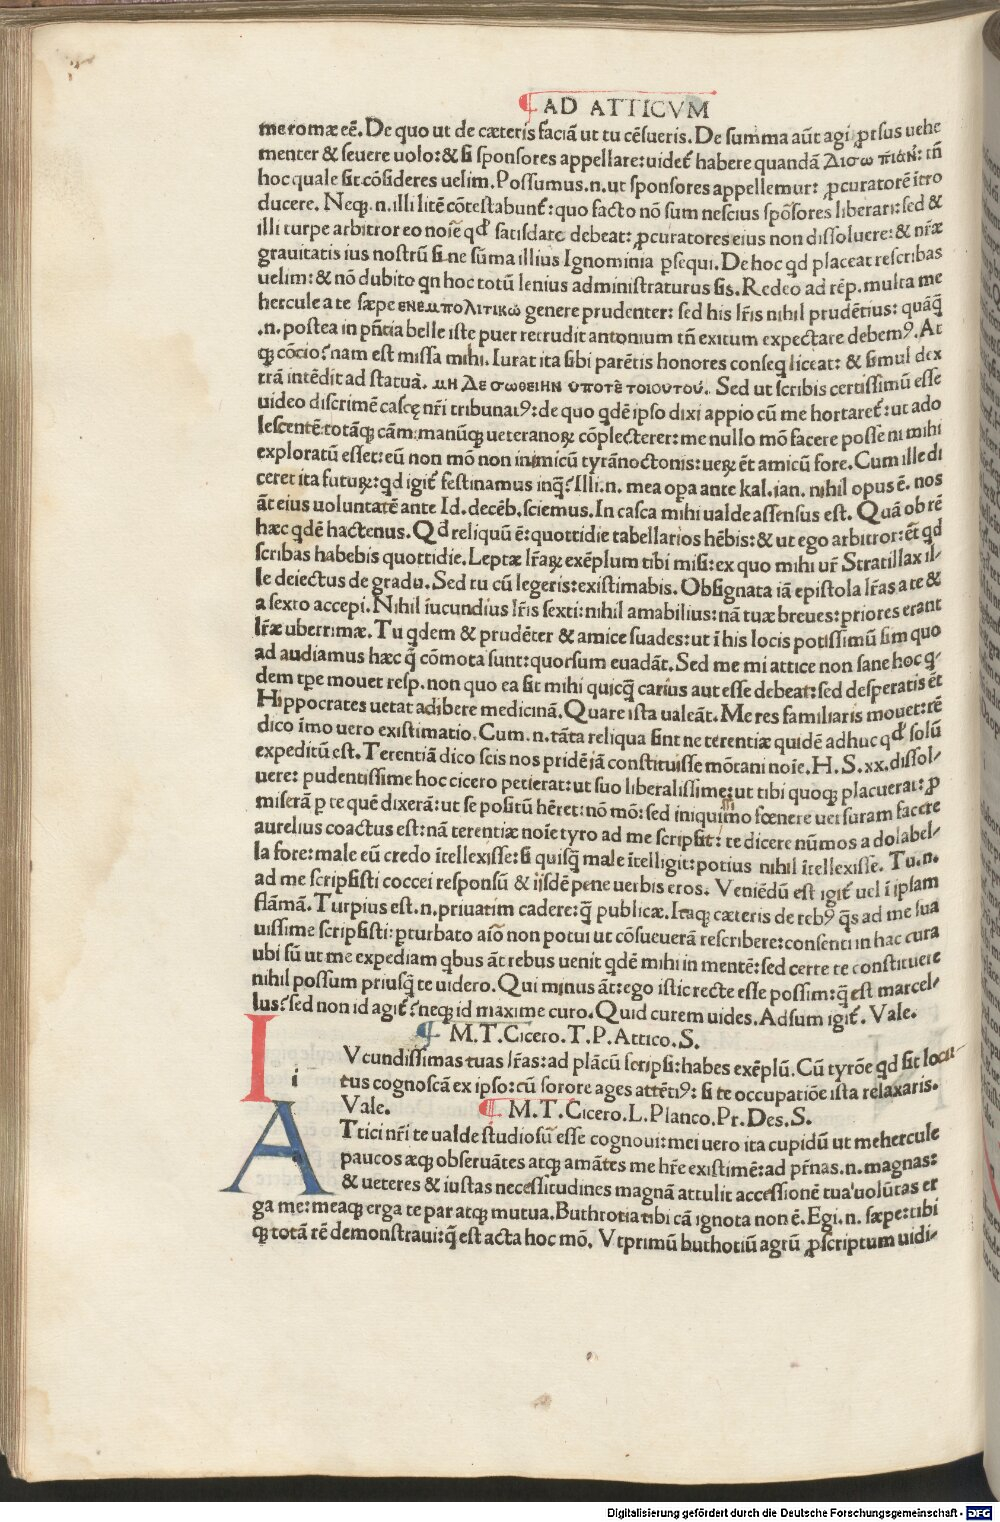 ¶ AD ATTICVM
me romæ eē. De quo ut de cæteris faciā ut tu cēsueris. De summa aūt agi ꝓrsus uehe
menter & seuere uolo: & si sponsores appellare: uidet̄ habere quandā Δισω πίαν: tn̄
hoc quale sit cōsideres uelim. Possumus .n. ut sponsores appellemur: ꝓcuratorē ītro
ducere. Neqꝫ .n. illi litē cōtestabunt̄: quo facto nō sum nescius spōsores liberari: sed &
illi turpe arbitror eo noīe qđ satisdato debeat: ꝓcuratores eius non dissoluere: & nr̄æ
grauitatis ius nostrū sine sūma illius Ignominia ꝑsequi. De hoc qd placeat rescribas
uelim: & nō dubito qn hoc totū lenius administraturus sis. Redeo ad rēp. multa me
hercule a te sæpe ενεμπολιτικω genere prudenter: sed his lr̄is nihil prudētius: quāq̄
.n. postea in pn̄tia belle iste puer retrudit antonium tn̄ exitum expectare debemꝰ. At
qꝫ cōcio? nam est missa mihi. Iurat ita sibi parētis honores conseq liceat: & simul dex
trā intēdit ad statuā. μη Δε σωθειην υποτε τοιουτου. Sed ut scribis certissimū esse
uideo discrimē cascę nr̄i tribunatꝰ: de quo qdē ipso dixi appio cū me hortaret̄: ut ado
lescentē totāqꝫ cām: manūqꝫ ueteranoꝝ cōplecterer: me nullo mō facere posse ni mihi
exploratū esset: eū non mō non inimicū tyrānoctonis: ueꝝ ēt amicū fore. Cum ille di
ceret ita futuꝝ: qd igit̄ festinamus inq̄? Illi .n. mea opa ante kal. ian. nihil opus ē. nos
āt eius uoluntatē ante Id. decēb. sciemus. In casca mihi ualde assensus est. Quā ob rē
hæc qdē hactenus. Qđ reliquū ē: quottidie tabellarios hēbis: & ut ego arbitror: ēt qd
scribas habebis quottidie. Leptæ lr̄aꝝ exēplum tibi misi: ex quo mihi ur̄ Stratillax il-
le deiectus de gradu. Sed tu cū legeris: existimabis. Obsignata iā epistola lr̄as a te &
a sexto accepi. Nihil iucundius lr̄is sexti: nihil amabilius: nā tuæ breues: priores erant
lr̄æ uberrimæ. Tu qdem & prudēter & amice suades: ut ī his locis potissimū sim quo
ad audiamus hæc q̄ cōmota sunt: quorsum euadāt. Sed me mi attice non sane hoc q-
dem tꝑe mouet resp. non quo ea sit mihi quicq̄ carius aut esse debeat: sed desperatis ēt
Hippocrates uetat adibere medicinā. Quare ista ualeāt. Me res familiaris mouet: rē
dico īmo uero existimatio. Cum .n. tāta reliqua sint ne terentiæ quidē adhuc qđ solū
expeditū est. Terentiā dico scis nos pridē iā constituisse mōtani noīe. H.S.xx. dissol-
uere: pudentissime hoc cicero petierat: ut suo liberalissime: ut tibi quoqꝫ placuerat: ꝓ
miserā ꝑ te quē dixerā: ut se positū hēret: nō mō: sed iniquissimo fœnere uersuram facere
aurelius coactus est: nā terentiæ noīe tyro ad me scripsit: te dicere nūmos a dolabel-
la fore: male eū credo ītellexisse: si quisq̄ male ītelligit: potius nihil ītellexisse. Tu .n.
ad me scripsisti coccei responsū & iisdē pene uerbis eros. Veniēdū est igit̄ uel ī ipsam
flāmā. Turpius est .n. priuatim cadere: q̄ publicæ. Itaqꝫ cæteris de rebꝰ q̄s ad me sua
uissime scripsisti: ꝑturbato aīo non potui ut cōsueuerā rescribere: consenti in hac cura
ubi sū ut me expediam qbus āt rebus uenit qdē mihi in mentē: sed certe te constituere
nihil possum priusq̄ te uidero. Qui minus āt: ego istic recte esse possim: q̄ est marcel-
lus? sed non id agit̄? neqꝫ id maxime curo. Quid curem uides. Adsum igit̄. Vale.
¶ M.T. Cicero. T.P. Attico. S.
I i Vcundissimas tuas lr̄as: ad plācū scripsi: habes exēplū. Cū tyrōe qd sit locu-
tus cognoscā ex ipso: cū sorore ages attētiꝰ: si te occupatiōe ista relaxaris.
Vale. ¶ M.T. Cicero. L. Planco. Pr. Des. S.
A Ttici nr̄i te ualde studiosū esse cognoui: mei uero ita cupidū ut mehercule
paucos æqꝫ obseruātes atqꝫ amātes me hr̄e existimē: ad pr̄nas .n. magnas:
& ueteres & iustas necessitudines magnā attulit accessionē tua uolūtas er
ga me: meaqꝫ erga te par atqꝫ mutua. Buthrotia tibi cā ignota non ē. Egi .n. sæpe: tibi
qꝫ totā rē demonstraui: q̄ est acta hoc mō. Vt primū buthotiū agrū ꝓscriptum uidi-
Digitalisierung gefördert durch die Deutsche Forschungsgemeinschaft - DFG